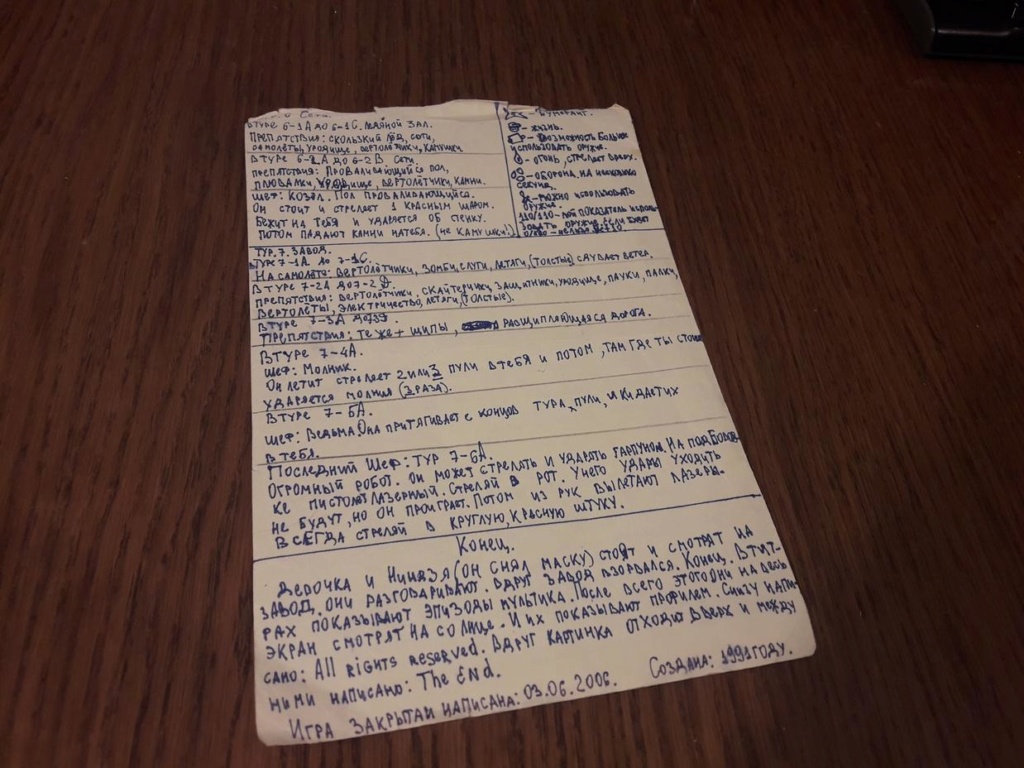 в туре 6-1А до 6-1С. маяной зал.
Препятствия: скользкий лёд, сети,
самолёты, уродище, вертолётчики, камушки
В туре 6-2А до 6-2В Сети.
препятствия: Проваливающийся пол,
плювалки, уродище, вертолётчики, камни.
шеф: Козёл. Пол проваливающийся.
Он стоит и стреляет 1 красным шаром.
Бежит на тебя и ударяется об стенку.
Потом падают камни на тебя. (не камушки!)
- бумеранг.
- жизнь.
- возможность больше
использовать оружие.
- огонь, стреляет вверх.
- оборона на несколько
секунд.
- можно использовать
оружие.
110/110 - мой показатель
зовать оружие если будет
Тур. 7. Завод.
В туре 7-1А до 7-1С.
На самолёте: вертолётчики, зомби, слуги, летяги, (толстые) сдувает ветер.
В туре 7-2А до 7-2Д.
препятствия: вертолётчики, скайтерики, защитники, уродище, пауки, палки,
вертолёты, электричество, летяги, (толстые).
В туре 7-3А до
Препятствия: те же + шипы, расщипляющаяся дорога.
В туре 7-4А.
шеф: Молник.
Он летит стреляет 2 или 3 пули в тебя и потом, там где ты стоишь
ударяется молния (3 раза).
В туре 7-5А.
шеф: Ведьма. Она притягивает с концов тура, пули, и кидает их
в тебя.
Последний шеф: тур 7-6А.
Огромный робот. Он может стрелять и ударять гарпуном. На подбород-
ке пистолет лазерный. Стреляй в рот. У него удары уходить
не будут, но он проиграет. Потом из рук вылетают лазеры.
Всегда стреляй в круглую, красную штуку.
Конец.
Девочка и Ниндзя (он снял маску) стоят и смотрят на
завод. Они разговаривают. Вдруг завод взорвался. Конец. В тит-
рах показывают эпизоды мультика. После всего этого они на весь
экран смотрят на солнце. И их показывают профилем. Снизу напи-
сано: All rights reserved. Вдруг картинка отходит вверх и между
ними написано: The End.
Игра закрытаи написана: 03.06.2006. Создана: 1991 году.